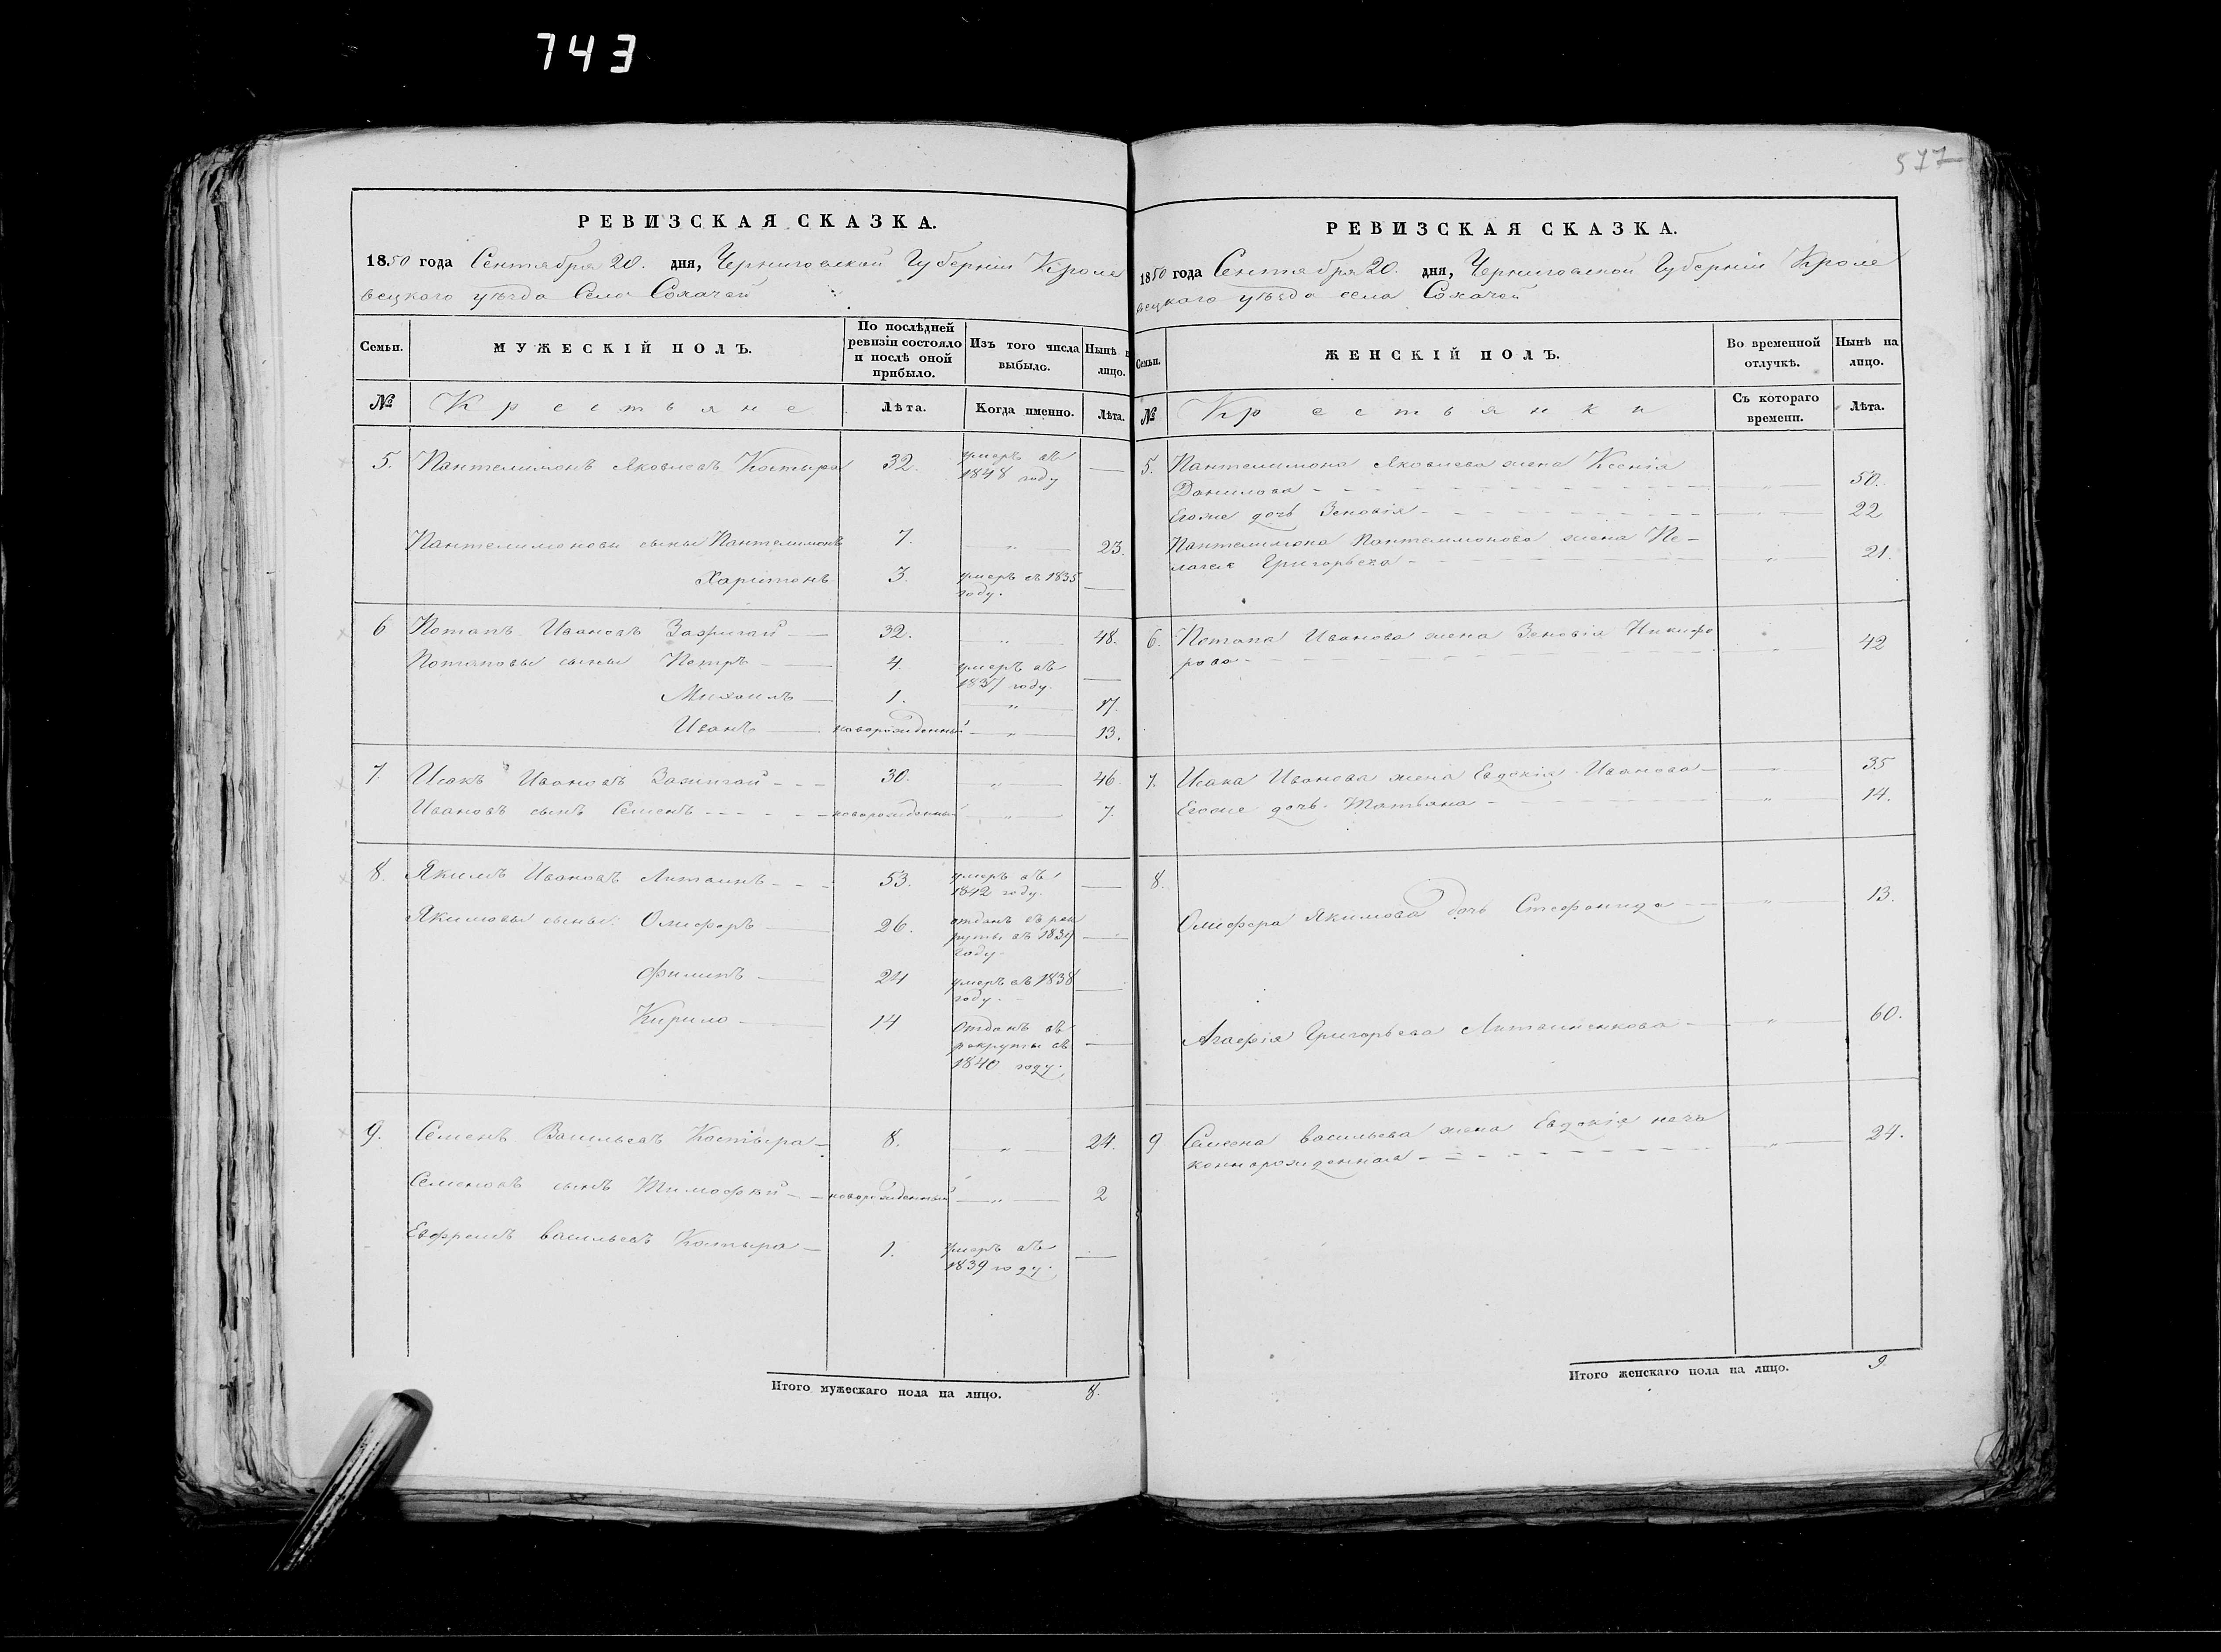 743
577
РЕВИЗСКАЯ СКАЗКА.
1850 года Сентября 20. дня, Черниговской Губерніи Кроле
вецкого уѣзда Село Сохачей
Семьи.
МУЖЕСКІЙ ПОЛЪ.
По послѣдней ревизіи состояло и послѣ оной прибыло.
Изъ того числа выбыло.
Нынѣ н лицо.
№
Крестьяне
Лѣта.
Когда именно.
Лѣта.
5. Пантелимонъ Яковлевъ Костыра 32. умеръ въ
1848 году
Пантелимоновы сыны Пантелимонъ 7. 23.
Харитонъ 3. умеръ въ 1835
году.
6 Потапъ Ивановъ 32. 48.
Потаповы сыны Петръ 4. умеръ въ
1837 году.
Михаилъ 1. 17.
Иванъ новорожденный 13.
7. Исакъ Ивановъ 30. 46.
Ивановъ сынъ Семенъ новорожденный 7.
8. Якимъ Ивановъ Литвинъ 53. умеръ въ
1842 году.
Якимовы сыны: Олиферъ 26. отданъ въ рек
руты въ 1839
году.
Филипъ 24 умеръ въ 1838
году.
Кирило 14 отданъ въ
рекруты въ
1840 году.
9. Семенъ Васильевъ Костыра 8. 24.
Семеновъ сынъ Тимофѣй новорожденный 2
Евфремъ Васильевъ Костыра 1. умеръ въ
1839 году.
Итого мужескаго пола на лицо. 8.
РЕВИЗСКАЯ СКАЗКА.
1850 года Сентября 20. дня, Черниговской Губерніи Кроле
вецкого уѣзда села Сохачей
Семьи.
ЖЕНСКІЙ ПОЛЪ.
Во временной отлучкѣ.
Нынѣ на лицо.
№
Крестьянки
Съ котораго времени.
Лѣта.
5. Пантелимона Яковлева жена Ксенія
Данилова 50.
Егоже дочь Зеновія 22
Пантелимона Пантелимонова жена Пе-
лагея Григорьева 21.
6. Потапа Иванова жена Зеновія Никифо
рова 42
7. Исака Иванова жена Евдокія Иванова 35
Егоже дочь Татьяна 14.
8.
Олифера Якимова дочь Стефанида 13.
Агафія Григорьева Литвиненкова 60.
9 Семена Васильева жена Евдокія неза
коннорожденная 24.
Итого женскаго пола на лицо. 9.